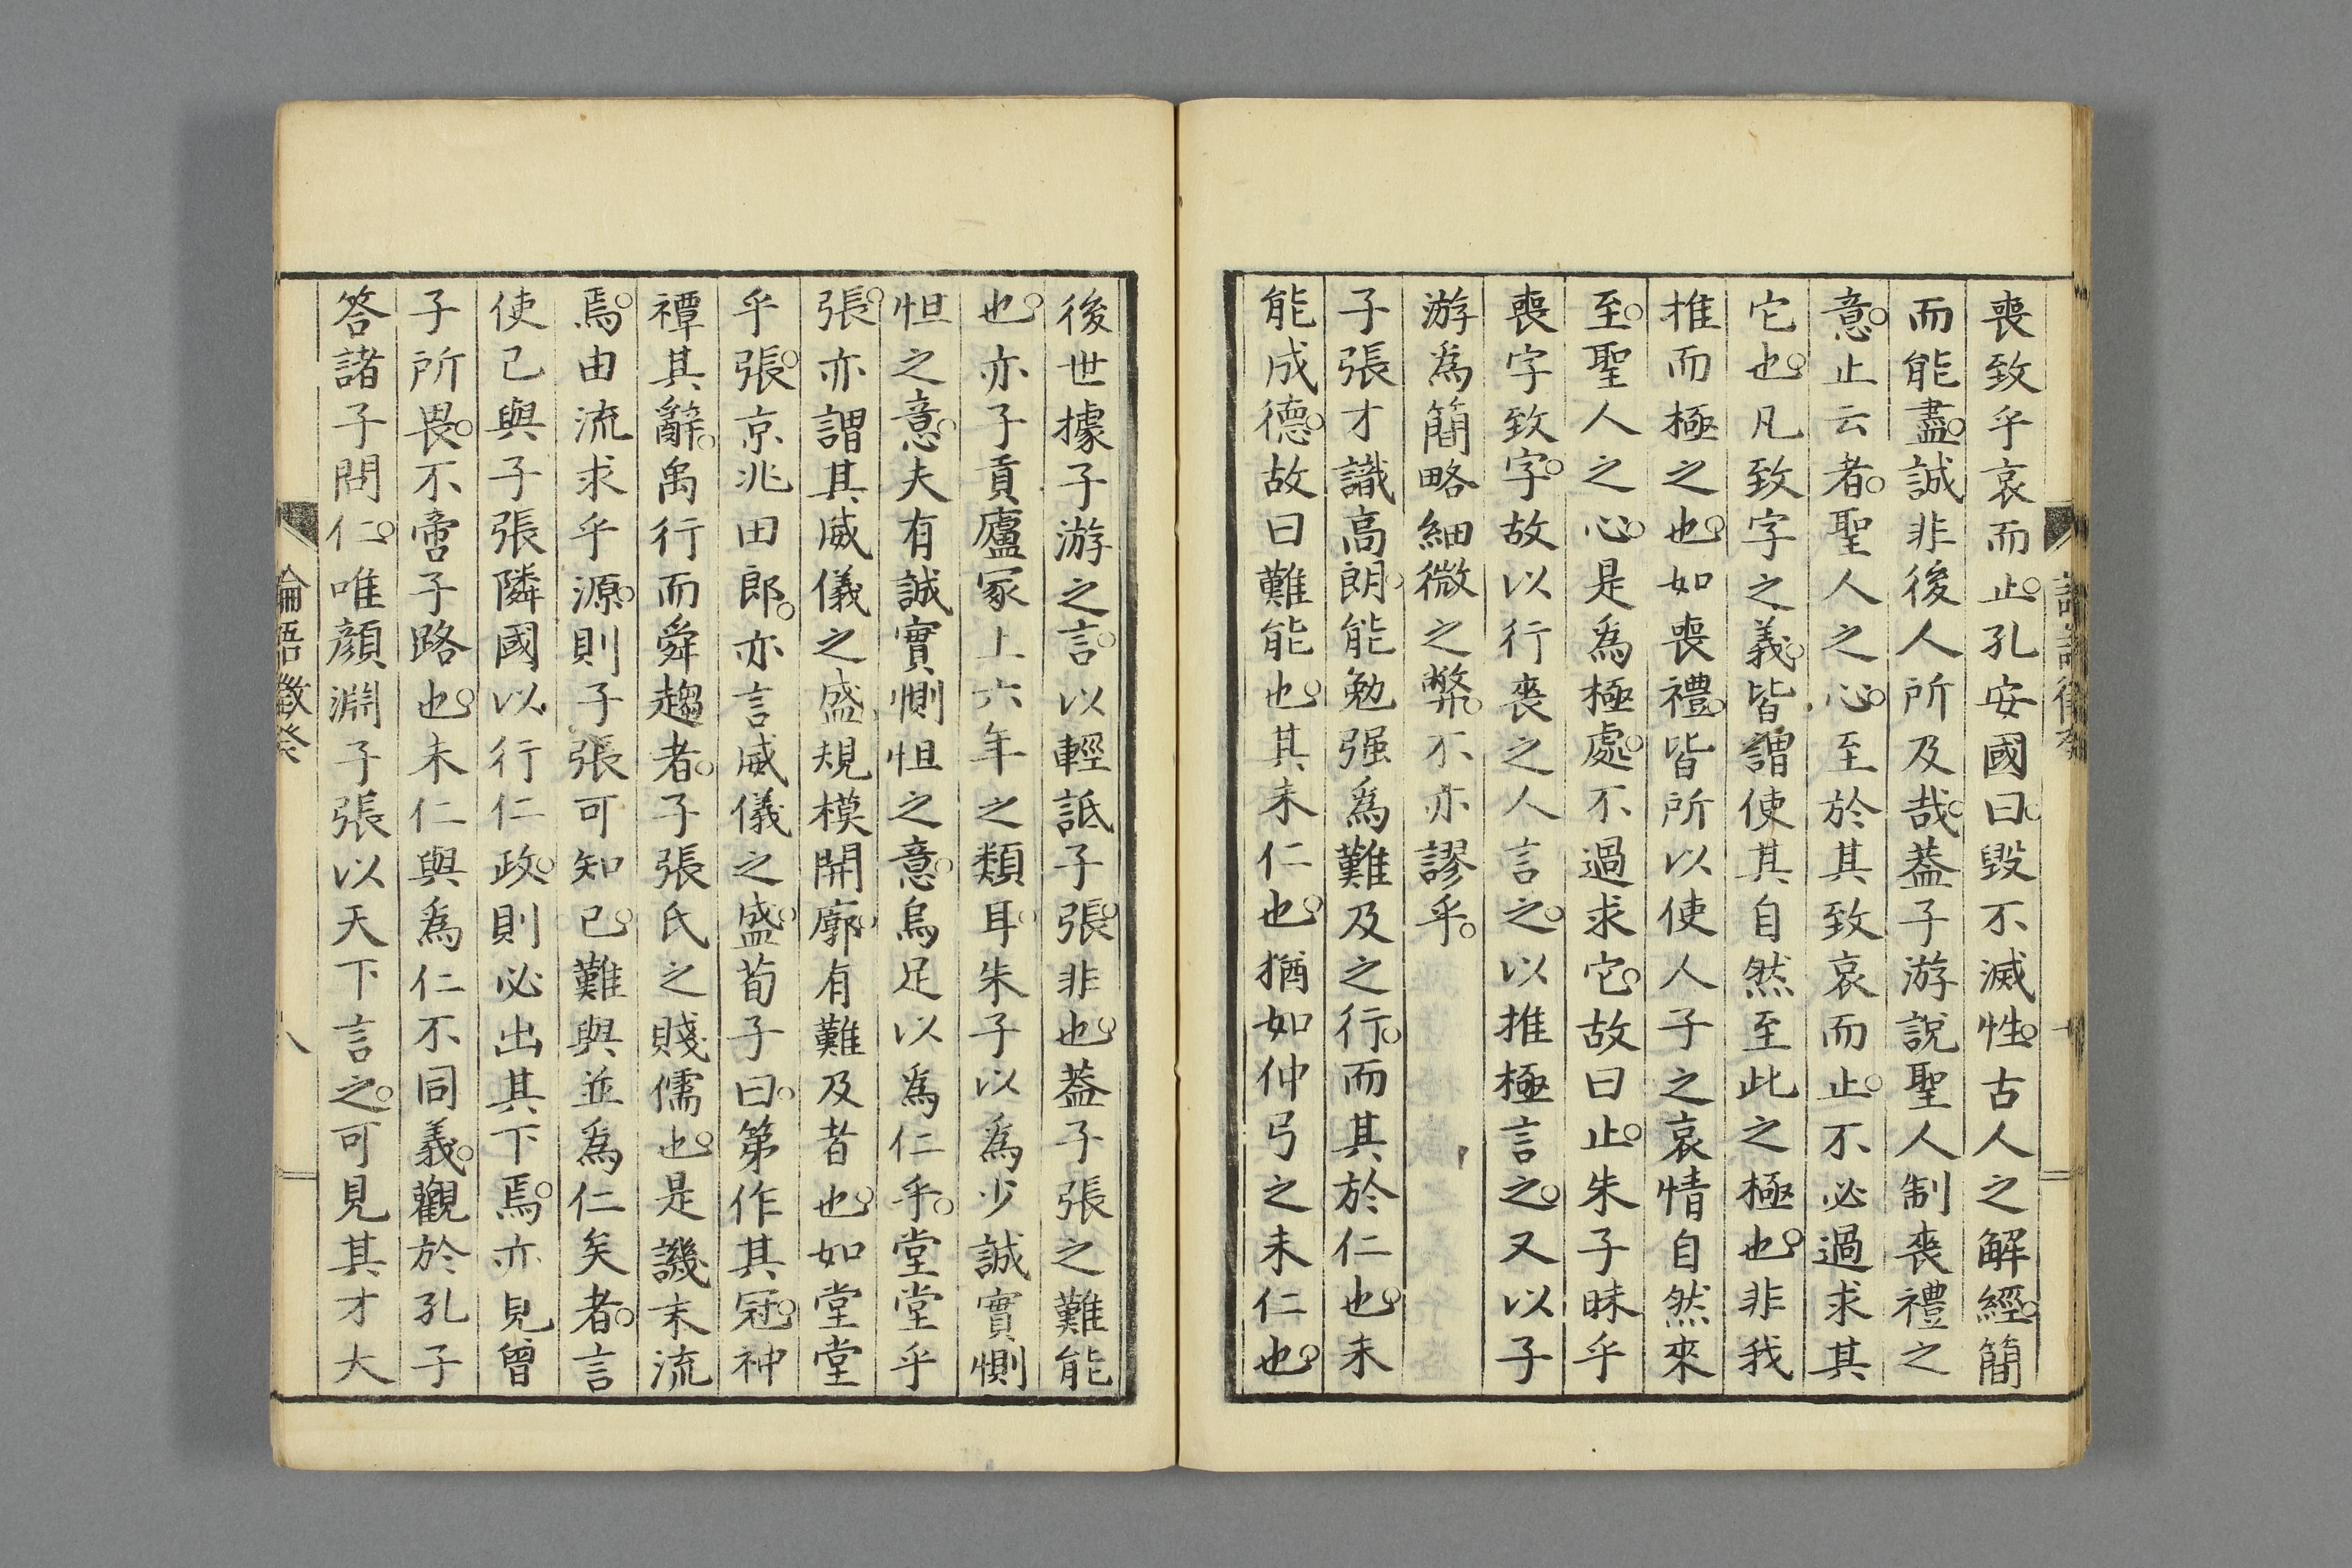 喪致乎哀而止。孔安國曰。毀不滅性。古人之解經。簡
而能盡。誠非後人所及哉。葢子游說聖人制喪禮之
意。止云者。聖人之心。至於其致哀而止。不必過求其
它也。凡致字之義。皆謂使其自然至此之極也。非我
推而極之也。如喪禮。皆所以使人子之哀情自然來
至。聖人之心。是爲極處。不過求它。故曰止。朱子昧乎
喪字致字。故以行喪之人言之。以推極言之。又以子
游爲簡略細微之弊。不亦謬乎。
子張才識高朗。能勉强爲難及之行。而其於仁也。未
能成德。故曰難能也。其未仁也。猶如仲弓之未仁也。
後世據子游之言。以輕詆子張。非也。葢子張之難能
也。亦子貢廬冢上六年之類耳。朱子以爲少誠實惻
怛之意。夫有誠實惻怛之意。烏足以爲仁乎。堂堂乎
張。亦謂其威儀之盛。規模開廓。有難及者也。如堂堂
乎張。京兆田郎。亦言威儀之盛。荀子曰。第作其冠。神
禫其辭。禹行而舜趨者。子張氏之賤儒也。是譏末流
焉。由流求乎源。則子張可知已。難與並爲仁矣者。言
使己與子張隣國以行仁政。則必出其下焉。亦見曾
子所畏。不啻子路也。未仁與爲仁不同義。觀於孔子
答諸子問仁。唯顏淵子張以天下言之。可見其才大
論語徵癸
八